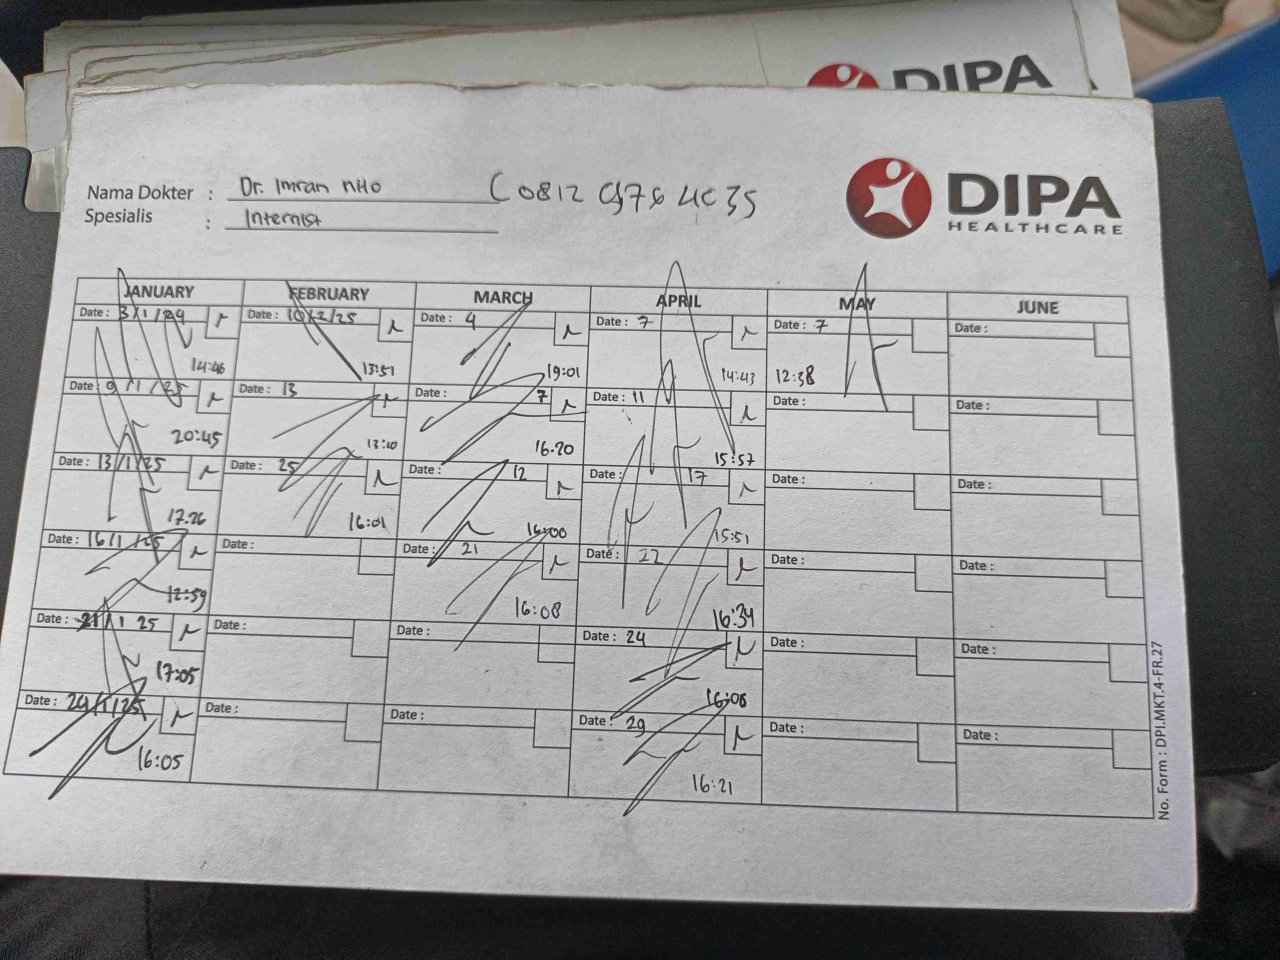 DIPA
Nama Dokter : Dr. Imran NHO
Spesialis : Internist
DIPA
HEALTHCARE
JANUARY FEBRUARY MARCH APRIL MAY JUNE
Date : 3/1/ Date : 10/2/25 Date : 4 Date : 7 Date : 7 Date :
14:46 13:51 19:01 14:43 12:38
Date : 9/1/25 Date : 13 Date : 7 Date : 11 Date : Date :
20:45 13:10 16.20 15:57
Date : 13/1/25 Date : 25 Date : 12 Date : 17 Date : Date :
17.26 16:01 16:00 15:51
Date : 16/1/25 Date : Date : 21 Date : 22 Date : Date :
12:59 16:08 16:34
Date : 21/1 25 Date : Date : Date : 24 Date : Date :
17:05 16:08
Date : 29/1/25 Date : Date : Date : 29 Date : Date :
16:05 16:21
No. Form : DPI.MKT.4-FR.27